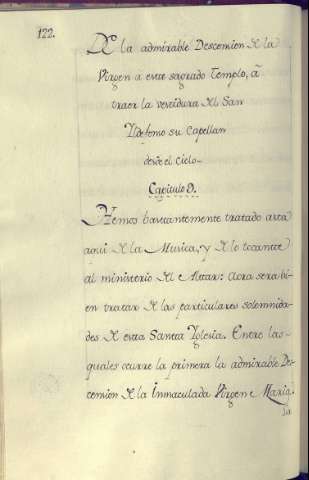 122.
De la admirable Descension de la
Virgen a este sagrado Templo, â
traer la vestidura al San
Yldefonso su Capellan
desde el Cielo-
Capitulo 9.
Hemos bastantemente tratado asta
aqui de la Musica, y de lo tocante
al ministerio del Altar: Aora sera bi-
en tratar de las particulares solemnida-
des de esta Santa Yglesia. Entre las
quales ocurre la primera la admirable Des-
cension de la Inmaculada Virgen Maria.